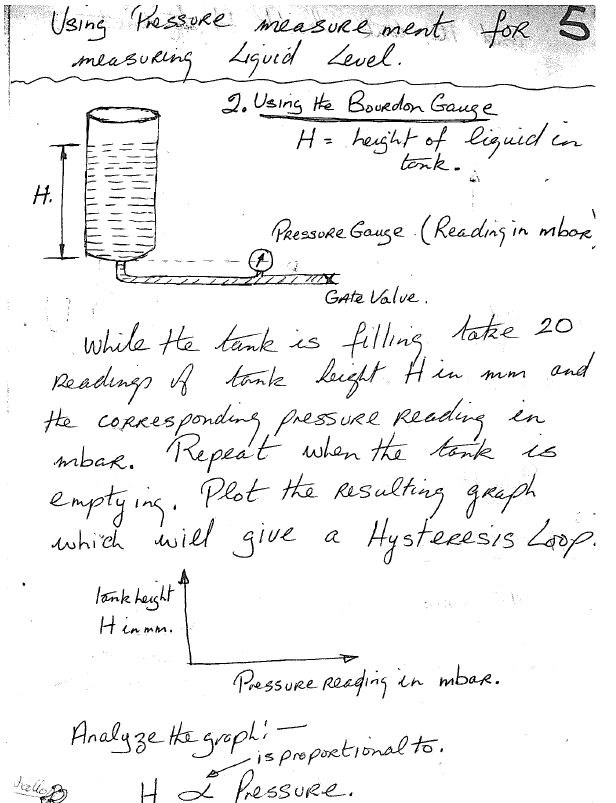 Using Pressure measurement for 5
measuring Liquid Level.
2. Using the Bourdon Gauge
H = height of liquid in
tank.
H.
Pressure Gauge (Reading in mbar)
Gate Valve.
While the tank is filling take 20
Readings of tank height H in mm and
the corresponding pressure reading in
mbar. Repeat when the tank is
emptying. Plot the resulting graph
which will give a Hysteresis Loop.
Tank height
H in mm.
Pressure reading in mbar.
Analyze the graph: —
is proportional to.
H ∝ Pressure.